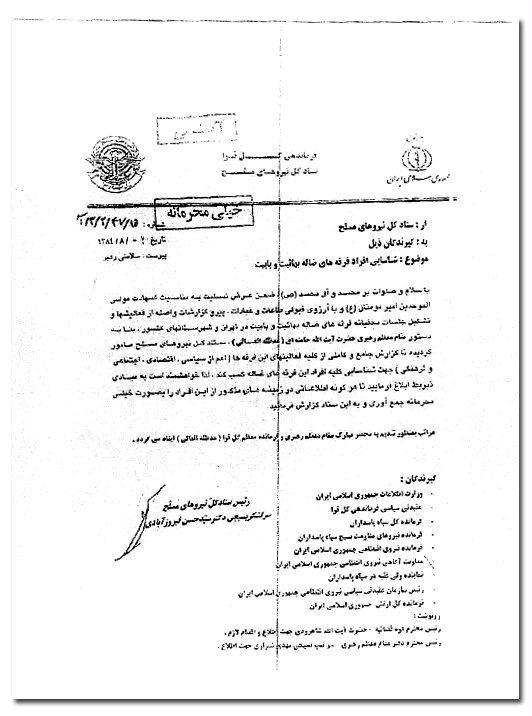 فرماندهی کـــل قوا
ستاد کل نیروهای مسلح
جمهوری اسلامی ایران
خیلی محرمانه
شماره :
تاریخ :
پیوست :
از : ستاد کل نیروهای مسلح
به : گیرندگان ذیل
موضوع : شناسایی افراد فرقه های ضاله بهائیت و بابیت
با سلام و صلوات بر محمد و آل محمد (ص) ضمن عرض تسلیت به مناسبت شهادت مولی
الموحدین امیر مومنان (ع) و با آرزوی قبولی طاعات و عبادات . پیرو گزارشات واصله از فعالیتها و
تشکیل جلسات مخفیانه فرقه های ضاله بهائیت و بابیت در تهران و شهرستانهای کشور ، بنا به
دستور مقام معظم رهبری حضرت آیت الله خامنه ای (مدظله العالی) . ستاد کل نیروهای مسلح مامور
گردیده تا گزارش جامع و کاملی از کلیه فعالیتهای این فرقه ها ( اعم از سیاسی . اقتصادی . اجتماعی
و فرهنگی ) جهت شناسایی کلیه افراد این فرقه های ضاله کسب کند . لذا خواهشمند است به مبادی
ذیربط ابلاغ فرمایید تا هر گونه اطلاعاتی در زمینه های مذکور از این افراد را بصورت خیلی
محرمانه جمع آوری و به این ستاد گزارش فرمایید
مراتب بمنظور تقدیم به محضر مبارک مقام معظم رهبری و فرمانده معظم کل قوا ( مدظله العالی ) ایفاد می گردد .
رئیس ستاد کل نیروهای مسلح
سرلشکر بسیجی دکتر سید حسن فیروزآبادی
گیرندگان :
وزارت اطلاعات جمهوری اسلامی ایران
عقیدتی سیاسی فرماندهی کل قوا
فرمانده کل سپاه پاسداران
فرمانده نیروهای مقاومت بسیج سپاه پاسداران
فرمانده نیروی انتظامی جمهوری اسلامی ایران
معاونت آگاهی نیروی انتظامی جمهوری اسلامی ایران
نماینده ولی فقیه در سپاه پاسداران
رئیس سازمان عقیدتی سیاسی نیروی انتظامی جمهوری اسلامی ایران
فرمانده کل ارتش جمهوری اسلامی ایران
رونوشت :
رئیس محترم قوه قضائیه - حضرت آیت الله شاهرودی جهت اطلاع و اقدام لازم .
رئیس محترم دفتر مقام معظم رهبری - شیرازی جهت اطلاع .